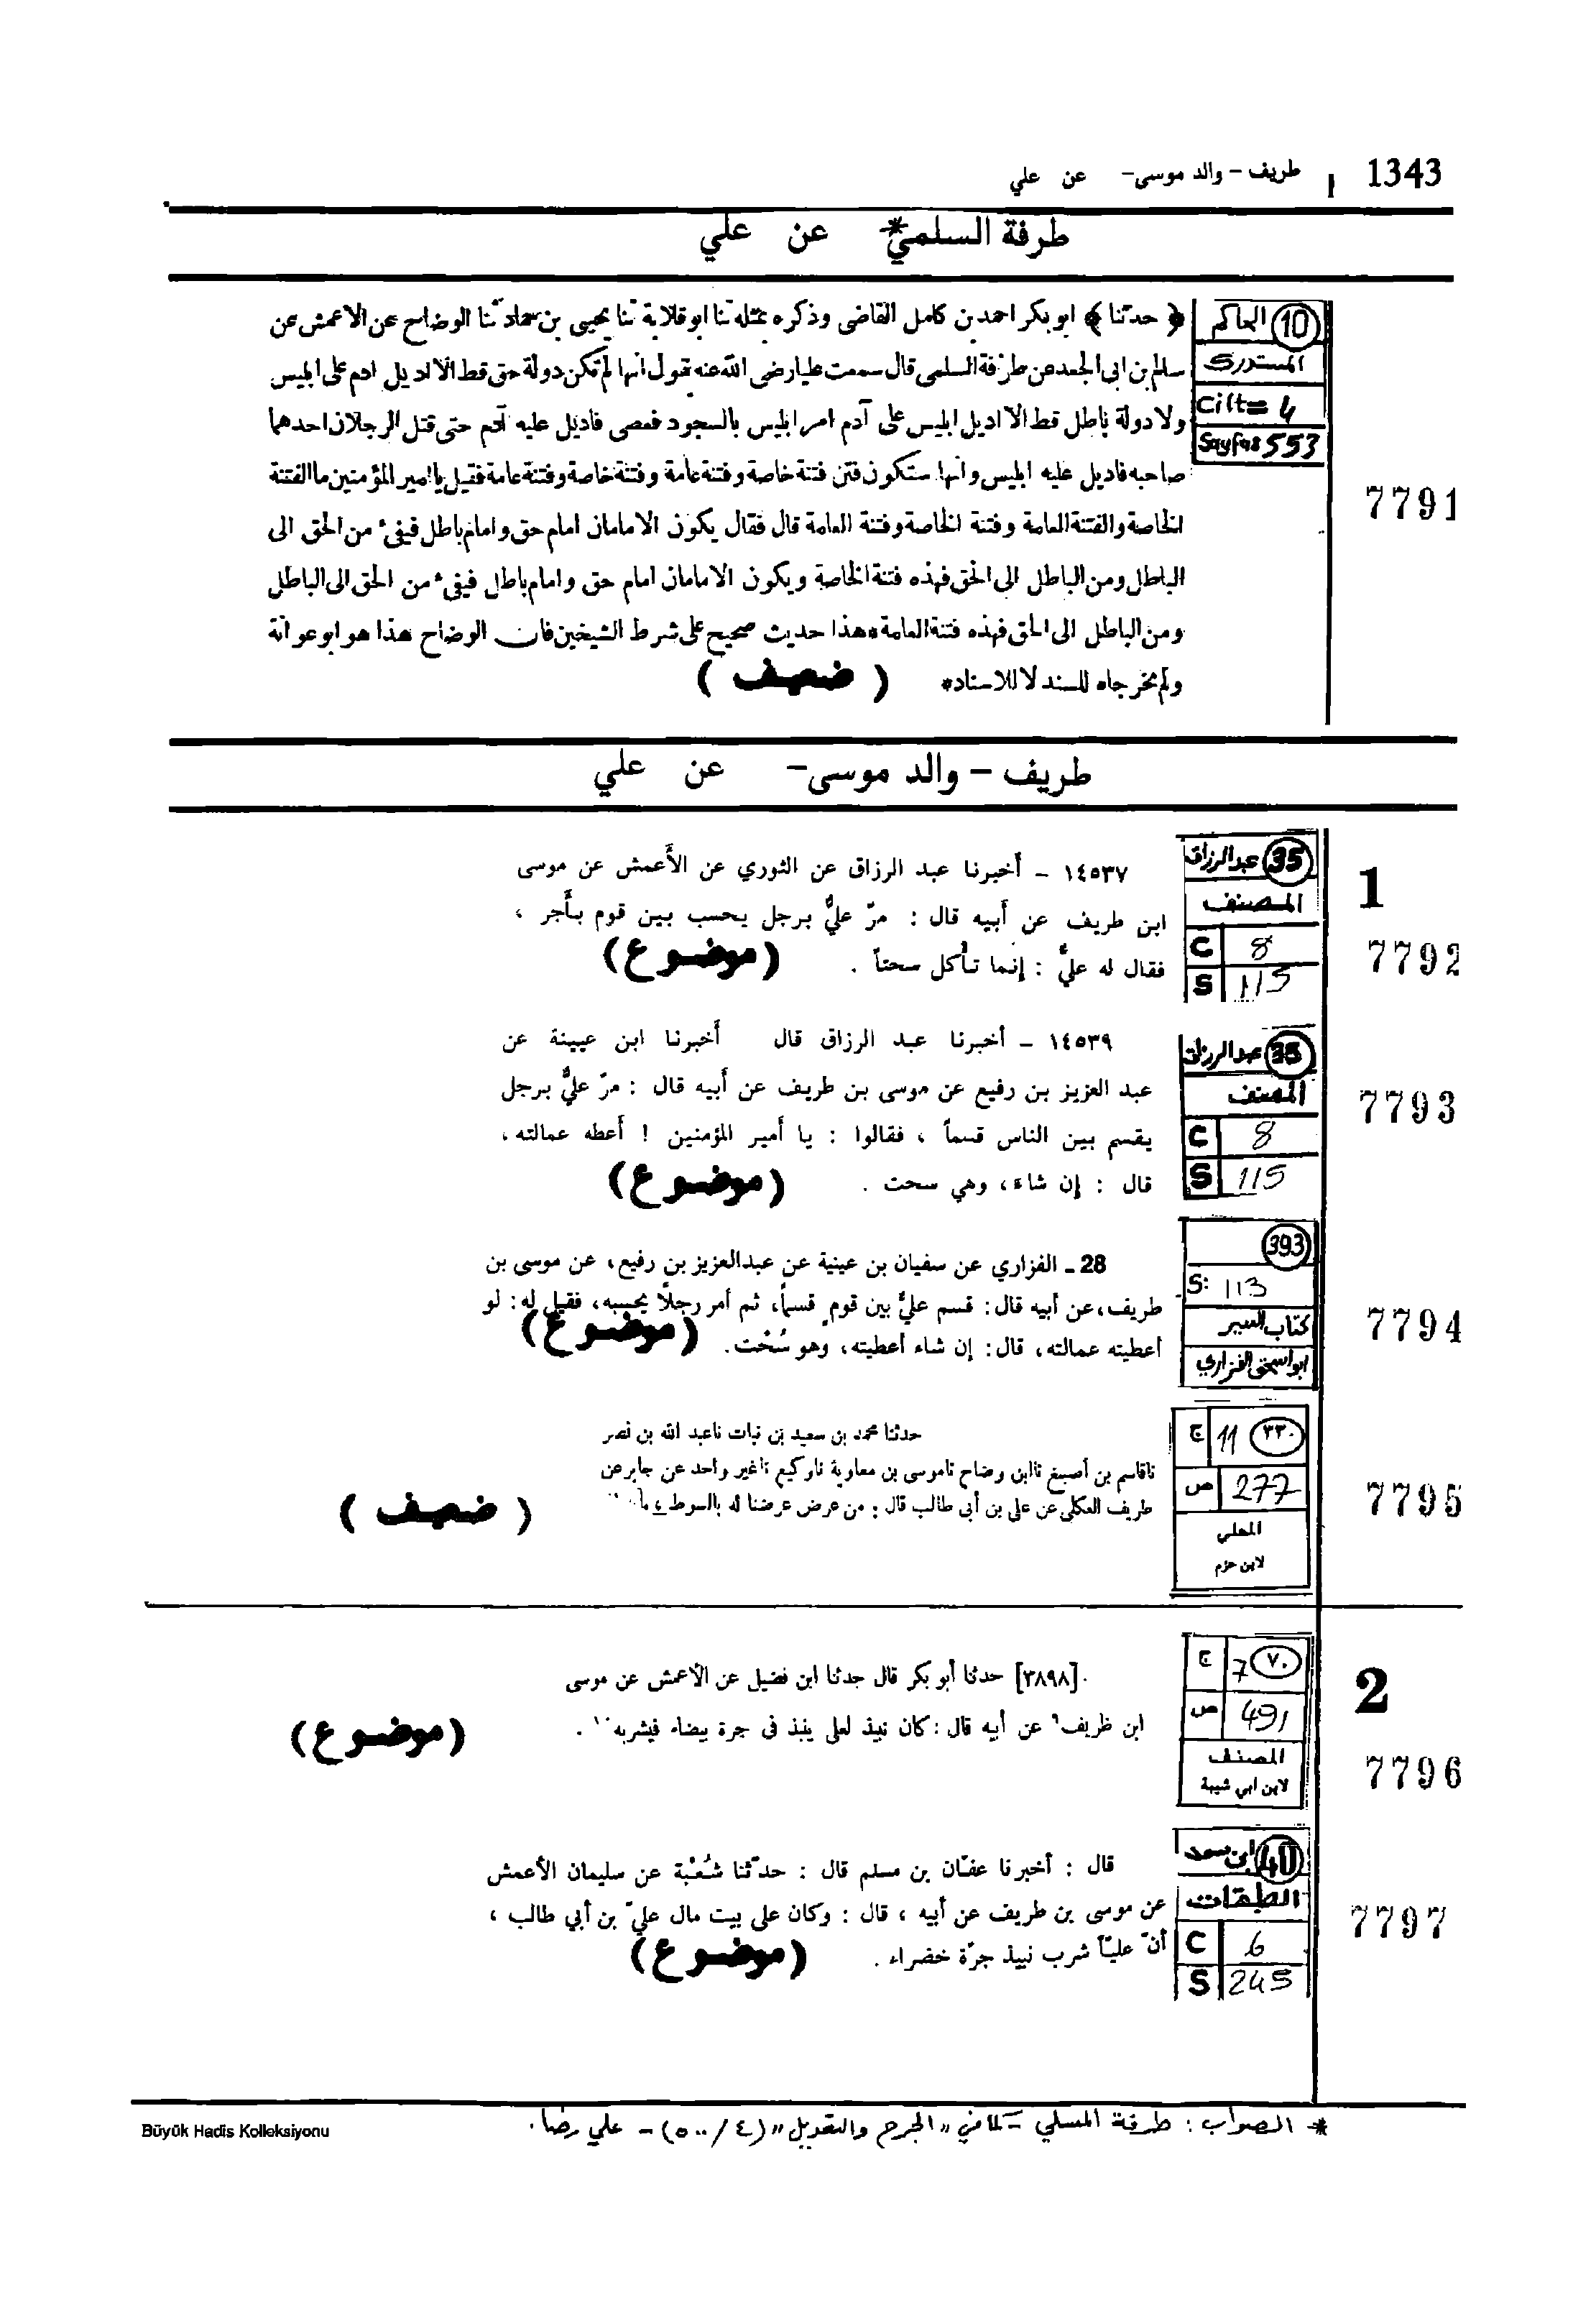 1343 طريف - والد موسى- عن علي
طرفة السلمي* عن علي
10 الحاكم
المستدرك
Cilt= 4
Sayfa: 553
7791
﴿ حدثنا ﴾ ابو بكر احمد بن كامل القاضى وذكره بمثله ثنا ابو قلابة ثنا يحيى بن حماد ثنا الوضاح عن الاعمش عن
سالم بن ابى الجعد عن طرفة السلمى قال سمعت عليا رضى الله عنه يقول انها لم تكن دولة حق قط الا اديل ادم على ابليس
ولا دولة باطل قط الا اديل ابليس على آدم امر ابليس بالسجود فعصى فاديل عليه آدم حتى قتل الرجلان احدهما
صاحبه فاديل عليه ابليس وانها ستكون فتن فتنة خاصة وفتنة عامة وفتنة خاصة وفتنة عامة فقيل يا امير المؤمنين ما الفتنة
الخاصة والفتنة العامة وفتنة الخاصة وفتنة العامة قال فقال يكون الامامان امام حق وامام باطل فيفىء من الحق الى
الباطل ومن الباطل الى الحق فهذه فتنة الخاصة ويكون الامامان امام حق وامام باطل فيفىء من الحق الى الباطل
ومن الباطل الى الحق فهذه فتنة العامة * هذا حديث صحيح على شرط الشيخين فان الوضاح هذا هو ابو عوانة
ولم يخرجاه للسند لا للاسناد * ( ضعيف )
طريف - والد موسى- عن علي
1
35 عبد الرزاق
المصنف
C 8
S 115
7792
١٤٥٣٧ - أخبرنا عبد الرزاق عن الثوري عن الأعمش عن موسى
ابن طريف عن أبيه قال : مرّ عليٌّ برجل يحسب بين قوم بأجر ،
فقال له عليٌّ : إنما تأكل سحتاً . (موضوع)
35 عبد الرزاق
المصنف
C 8
S 115
7793
١٤٥٣٩ - أخبرنا عبد الرزاق قال أخبرنا ابن عيينة عن
عبد العزيز بن رفيع عن موسى بن طريف عن أبيه قال : مرّ عليٌّ برجل
يقسم بين الناس قسماً ، فقالوا : يا أمير المؤمنين ! أعطه عمالته ،
قال : إن شاء ، وهي سحت . (موضوع)
393
S: 113
كتاب السير
ابو اسحق الفزاري
7794
28 ـ الفزاري عن سفيان بن عيينة عن عبدالعزيز بن رفيع، عن موسى بن
طريف، عن أبيه قال: قسم عليٌّ بين قوم قسماً، ثم أمر رجلًا يحسبه، فقيل له: لو
أعطيته عمالته، قال: إن شاء أعطيته، وهو سُحْت. (موضوع)
٣٣٠ 11 ج
277 ص
المحلى
لابن حزم
7795
حدثنا محمد بن سعيد بن نبات ناعبد الله بن نصر
ناقاسم بن أصبغ ناابن وضاح ناموسى بن معاوية ناوكيع ناغير واحد عن جابر عن
طريف العكلى عن على بن أبى طالب قال : من عرض عرضنا له بالسوط ( ضعيف )
2
٧٠ 7 ج
491 ص
المصنف
لابن ابي شيبة
7796
[٣٨٩٨] حدثنا أبو بكر قال حدثنا ابن فضيل عن الأعمش عن موسى
ابن ظريف عن أبيه قال : كان نبيذ لعلى ينبذ فى جرة بيضاء فيشربه . (موضوع)
40 ابن سعد
الطبقات
C 6
S 245
7797
قال : أخبرنا عفّان بن مسلم قال : حدّثنا شُعْبة عن سليمان الأعمش
عن موسى بن طريف عن أبيه ، قال : وكان على بيت مال عليّ بن أبي طالب ،
أنّ عليّاً شرب نبيذ جرّة خضراء . (موضوع)
* الصواب : طرفة المسلي - كما في "الجرح والتعديل" (٤/٥٠٠) - علي رضا .
Büyük Hadis Kolleksiyonu